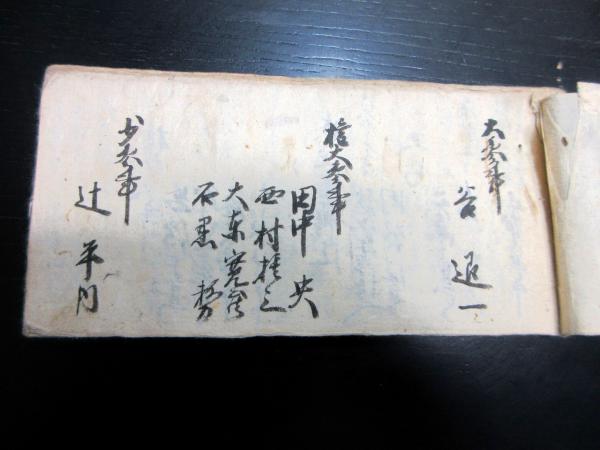 大参事
谷 退一
権大参事
田中 央
西村捨三
大東寛蔵
石黒 務
少参事
辻 平内